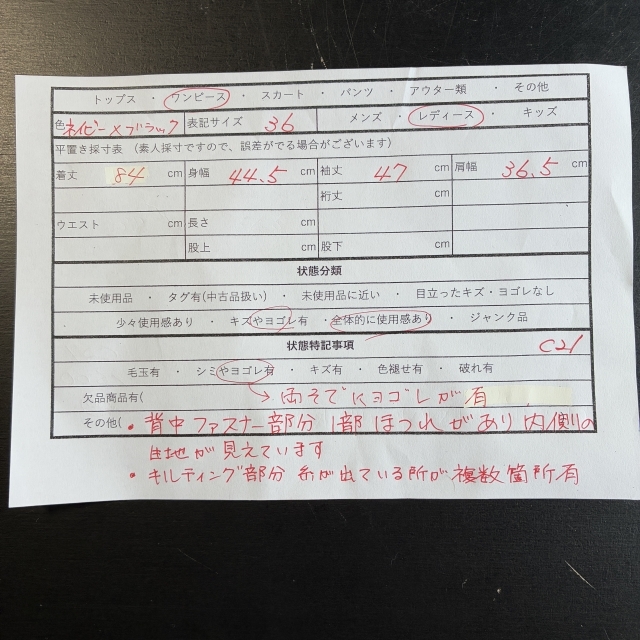 トップス ・ ワンピース ・ スカート ・ パンツ ・ アウター類 ・ その他
色 ネイビー×ブラック 表記サイズ 36 メンズ ・ レディース ・ キッズ
平置き採寸表 （素人採寸ですので、誤差がでる場合がございます）
着丈 84 cm 身幅 44.5 cm 袖丈 47 cm 肩幅 36.5 cm
裄丈 cm
ウエスト cm 長さ cm
股上 cm 股下 cm
状態分類
未使用品 ・ タグ有(中古品扱い) ・ 未使用に近い ・ 目立ったキズ・ヨゴレなし
少々使用感あり ・ キズやヨゴレ有 ・ 全体的に使用感あり ・ ジャンク品
状態特記事項 C21
毛玉有 ・ シミやヨゴレ有 ・ キズ有 ・ 色褪せ有 ・ 破れ有
欠品商品有( → 両そでにヨゴレが有
その他( ・背中ファスナー部分1部ほつれがあり内側の
生地が見えています
・キルティング部分 糸が出ている所が複数箇所有